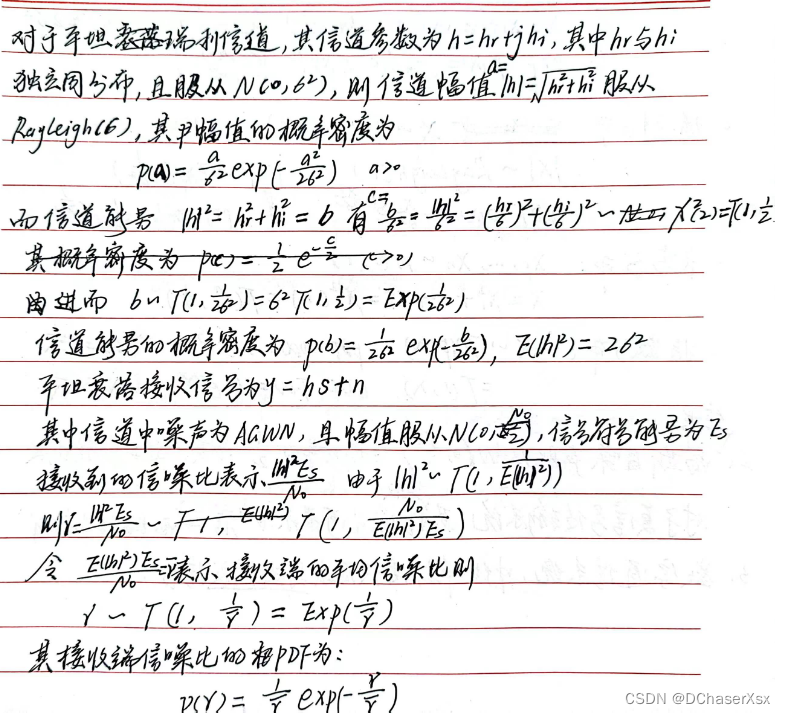 对于平坦衰落瑞利信道,其信道参数为h=hr+jhi,其中hr与hi
独立同分布,且服从N(0,6²),则信道幅值a=|h|=√(hr²+hi²)服从
Rayleigh(6),其中幅值的概率密度为
p(a)=a/6² exp(-a²/26²) a>0
而信道能量|h|²=hr²+hi²=b 有c=b/6²=|h|²/6²=(hr/6)²+(hi/6)²~χ²(2)=Γ(1,1/2
其概率密度为 p(c)=1/2 e^(-c/2) (c>0)
进而 b~Γ(1,1/26²)=6²Γ(1,1/2)=Exp(1/26²)
信道能量的概率密度为 p(b)=1/26² exp(-b/26²), E(|h|²)=26²
平坦衰落接收信号为y=hs+n
其中信道中噪声为AGWN,且幅值服从N(0,N0/2),信号符号能量为Es
接收到的信噪比表示|h|²Es/N0 由于|h|²~Γ(1,1/E(|h|²))
则γ=|h|²Es/N0~Γ(1,N0/E(|h|²)Es)
令 E(|h|²)Es/N0=γ̄表示接收端的平均信噪比则
γ~Γ(1,1/γ̄)=Exp(1/γ̄)
其接收端信噪比的PDF为:
p(γ)=1/γ̄ exp(-γ/γ̄)
CSDN @DChaserXsx